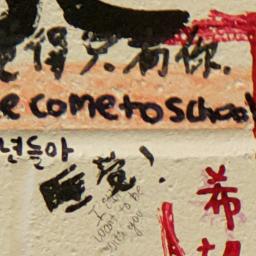 得只有你.
e come to school
년들아
睡觉!
I just
want to be
with you
希